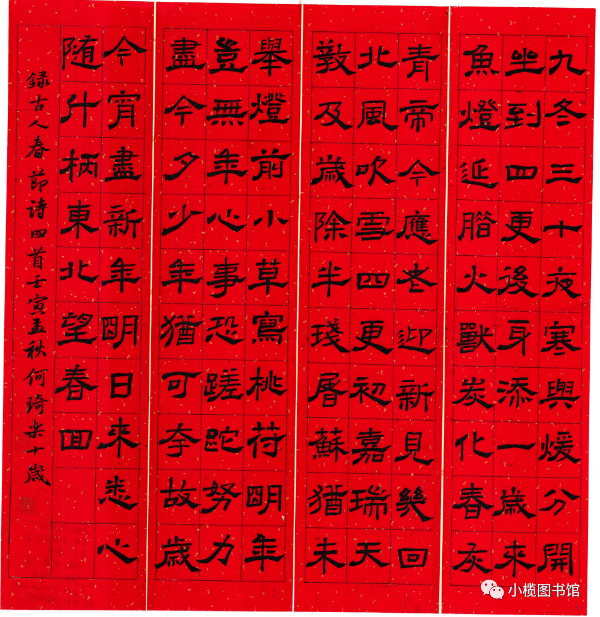 九冬三十夜寒與煖分開
坐到四更後身添一歲來
魚燈延腊火獸炭化春灰
青帝今應老迎新見幾回
北風吹雪四更初嘉瑞天
教及歲除半琖屠蘇猶未
舉燈前小草寫桃符明年
豈無年心事恐蹉跎努力
盡今夕少年猶可夸故歲
今宵盡新年明日来愁心
随斗柄東北望春回
録古人春節诗四首壬寅孟秋何琦楽十歲
小榄图书馆